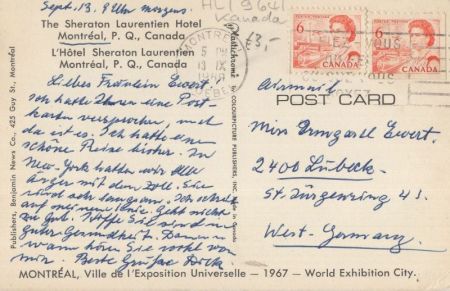 Sept. 13. 9 Uhr morgens.
The Sheraton Laurentien Hotel
Montréal, P. Q., Canada
L'Hôtel Sheraton Laurentien
Montréal, P. Q., Canada
HLI 9641
Kanada
£3,-
MONTREAL
5 PM
13 IX
QUÉBEC
6
CANADA
6
CANADA
Plastichrome by COLOURPICTURE PUBLISHERS, INC.
Publishers, Benjamin News Co., 425 Guy St., Montréal
Airmail
POST CARD
Miss Irmgard Ewert.
2400 Lübeck.
St. Jürgenring 41.
West-Germany
Liebes Fräulein Ewert,
ich hatte Ihnen eine Post-
karte versprochen, und
da ist es. Ich hatte eine
schöne Reise bisher. In
New-York hatten wir
Ärger mit dem Zoll. Sie
sehr langsam. Ich
auf meinem Knie. Geht nicht
zu gut. Hoffe Sie sind in
guter Gesundheit.
wann hören Sie
von mir. Beste Grüsse
MONTRÉAL, Ville de l'Exposition Universelle – 1967 – World Exhibition City.